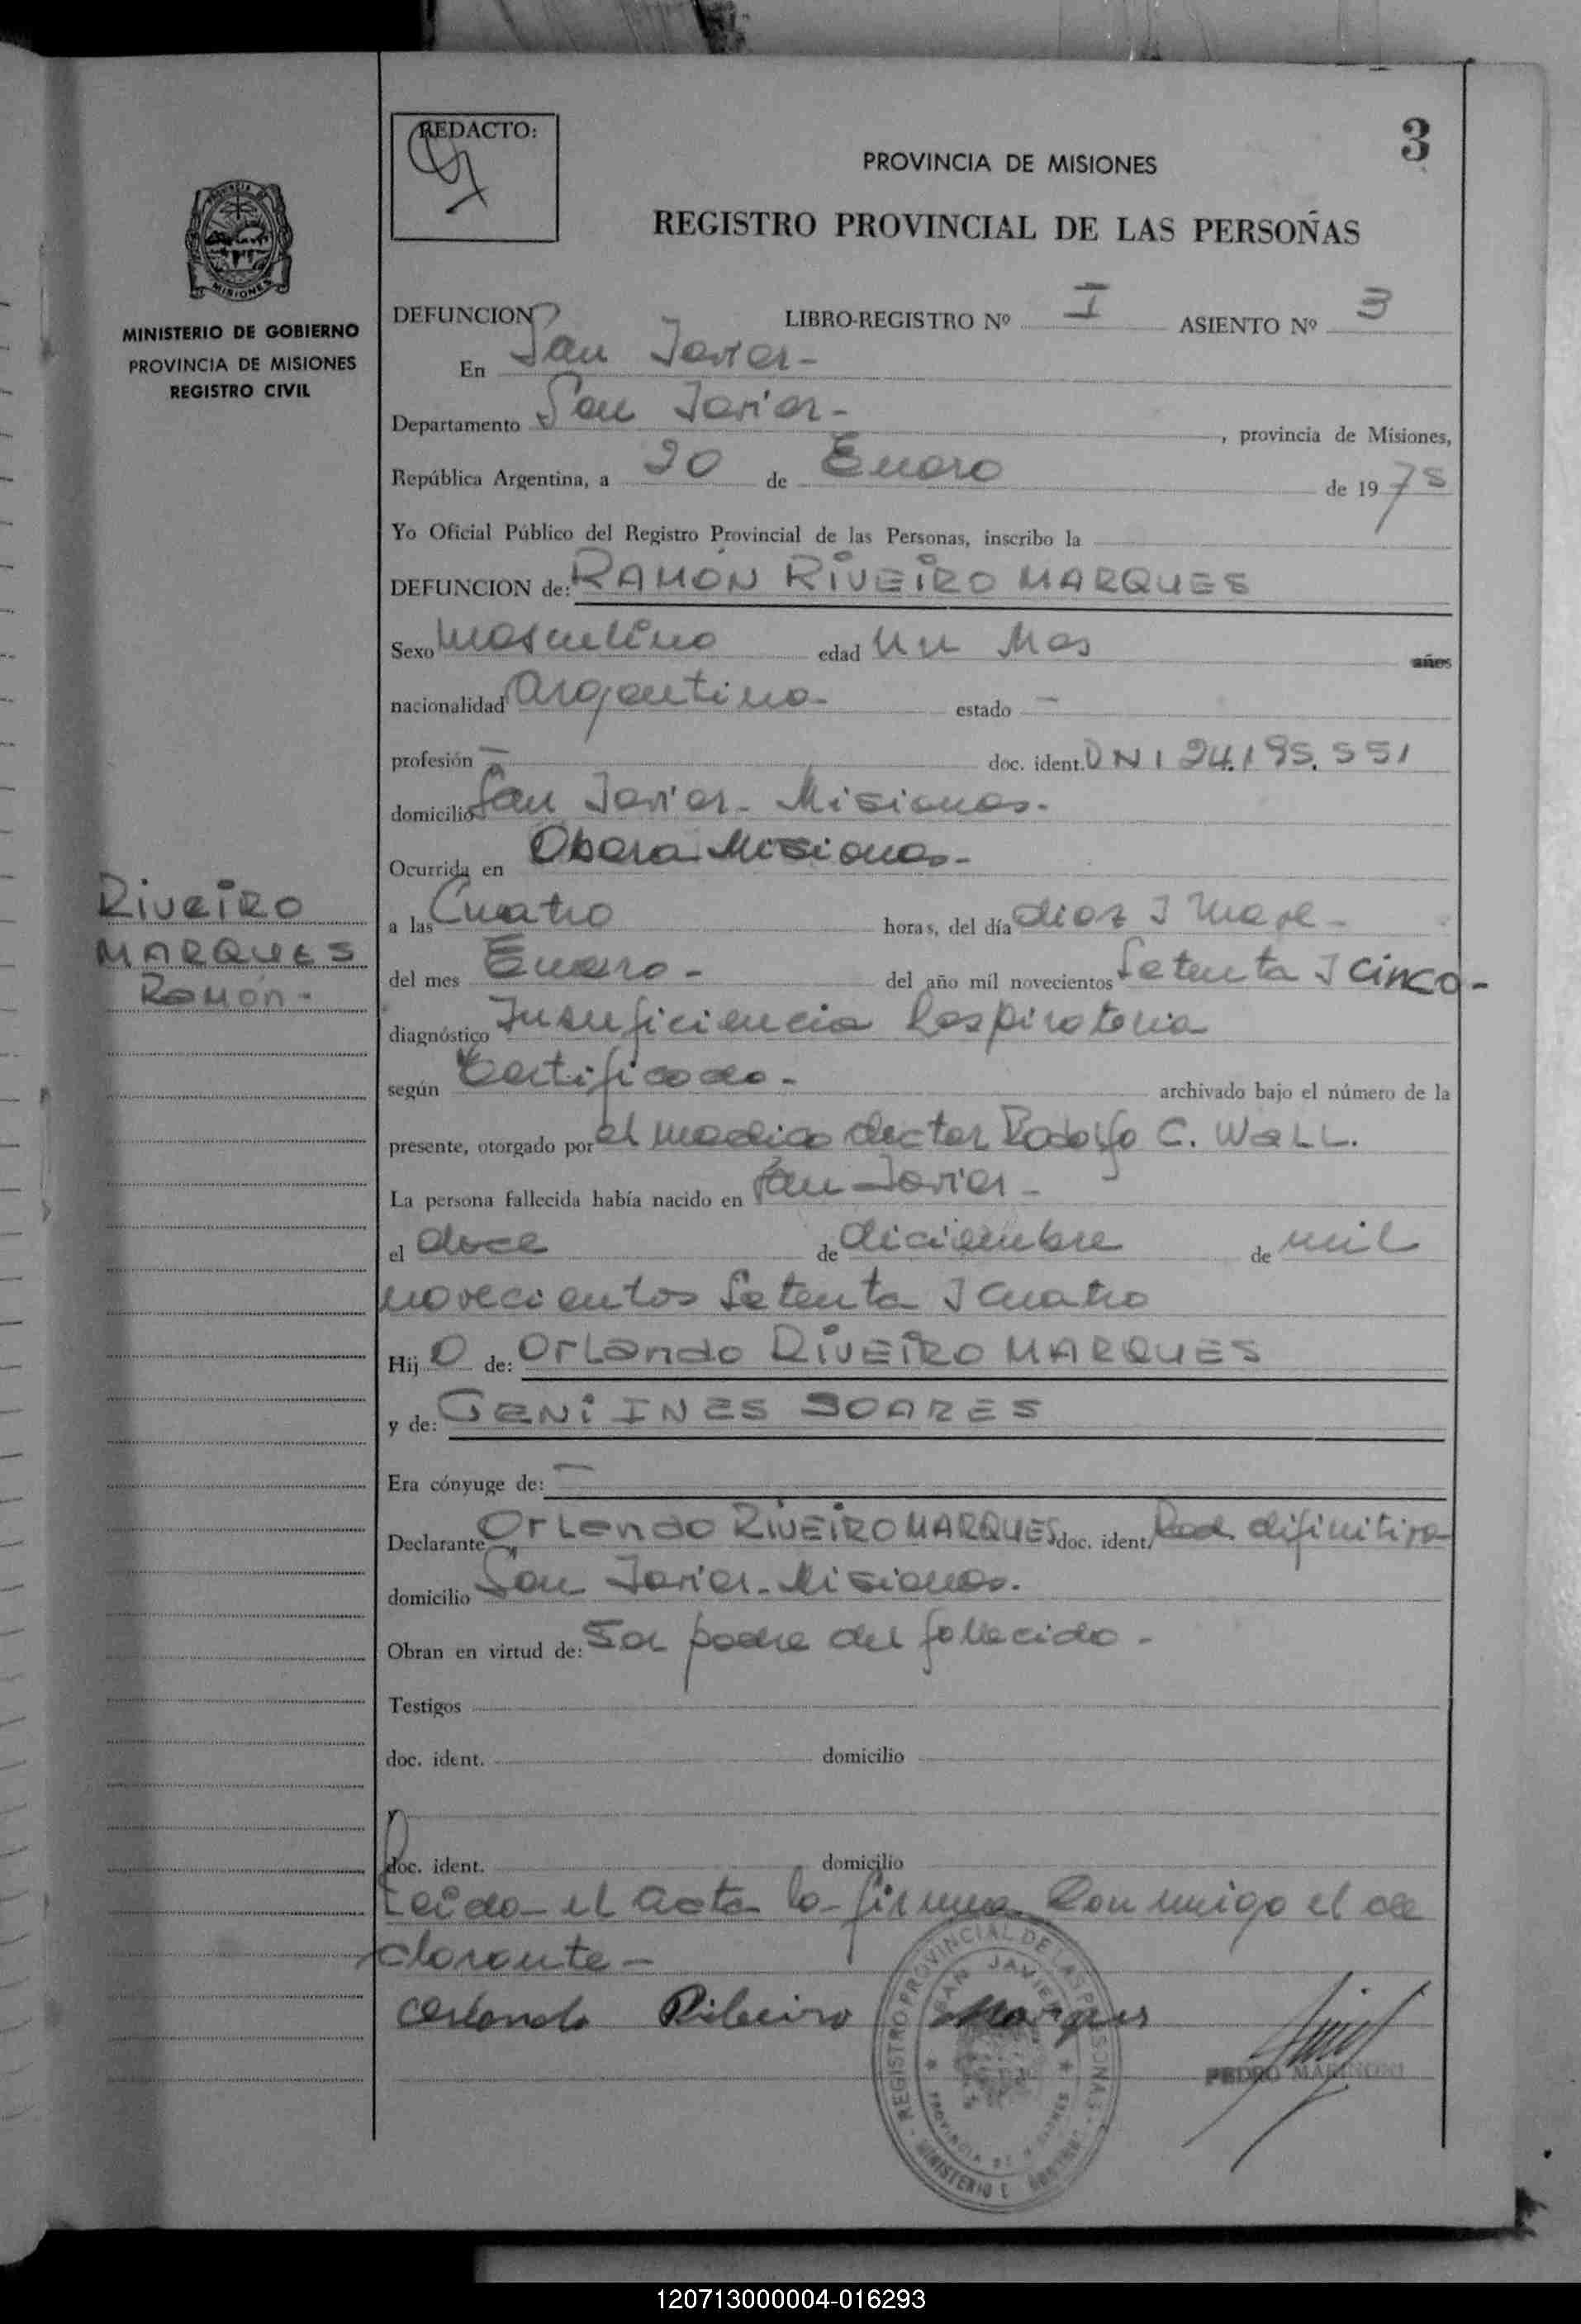 REDACTO:
3
PROVINCIA DE MISIONES
REGISTRO PROVINCIAL DE LAS PERSOÑAS
MINISTERIO DE GOBIERNO
PROVINCIA DE MISIONES
REGISTRO CIVIL
DEFUNCION LIBRO-REGISTRO Nº I ASIENTO Nº 3
En San Javier-
Departamento San Javier- , provincia de Misiones,
República Argentina, a 20 de Enero de 1975
Yo Oficial Público del Registro Provincial de las Personas, inscribo la
DEFUNCION de: RAMÓN RIVEIRO MARQUES
Sexo Masculino edad Un Mes años
nacionalidad Argentina- estado —
profesión — doc. ident. DNI 24.195.551
domicilio San Javier- Misiones-
Ocurrida en Obera Misiones-
Riveiro
MARQUES
Ramón-
a las Cuatro horas, del día diez y nueve-
del mes Enero- del año mil novecientos Setenta y cinco-
diagnóstico Insuficiencia Respiratoria
según Certificado- archivado bajo el número de la
presente, otorgado por el medico doctor Rodolfo C. WaLL.
La persona fallecida había nacido en San Javier-
el doce de diciembre de mil
novecientos Setenta y Cuatro
Hij O de: OrLando RIVEIRO MARQUES
y de: GENI INES SOARES
Era cónyuge de: —
Declarante OrLando RIVEIRO MARQUES doc. ident. difinitiva
domicilio San Javier- Misiones.
Obran en virtud de: Ser padre del fallecido-
Testigos
doc. ident. domicilio
y
doc. ident. domicilio
Leida el acta la firma Conmigo el de
clarante-
Orlando Ribeiro Marques
REGISTRO PROVINCIAL DE LAS PERSONAS
SAN JAVIER
PROVINCIA DE MISIONES
PEDRO
120713000004-016293